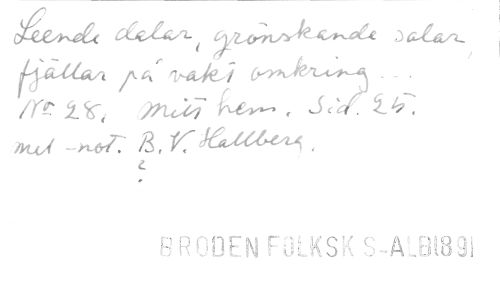 Leende dalar, grönskande salar,
fjällar på vakt omkring...
No. 28. Mitt hem. Sid. 25.
met -not. B. V. Hallberg.
?
BRODEN FOLKSK S-ALB1891